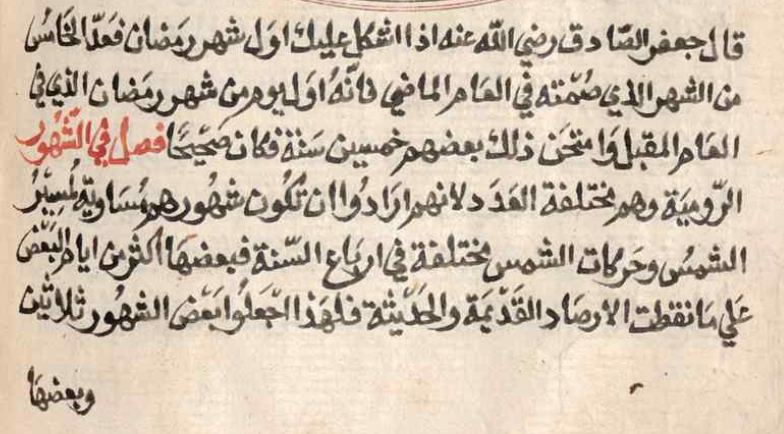 قال جعفر الصّادق رضي اللّه عنه اذا اشكل عليك اوّل شهر رمَضان فعَدّ الخامس
من الشهر الذي صُمْته في العَام الماضي فانّهُ اوّل يوم من شهر رمَضان الذي في
العَام المقبل وَامتحَن ذلك بعضهم خمسين سَنة فكان صَحيْحًا فصل في الشّهُور
الرّوميَة وهم مختلفة العَدَد لانهم ارَادُوا ان تكُون شهُورهم مُسَاويَة لمسِيْرُ
الشمسُ وحَركات الشمس مختلفة في ارباع السّنة فبعضهَا اكثر من ايام البَعْض
عَلي مَا نقطت الارصَاد القَدْيمَة والحَدْيثة فلهَذا اجعَلوا بَعْض الشهُور ثلاثين
وبعضهَا